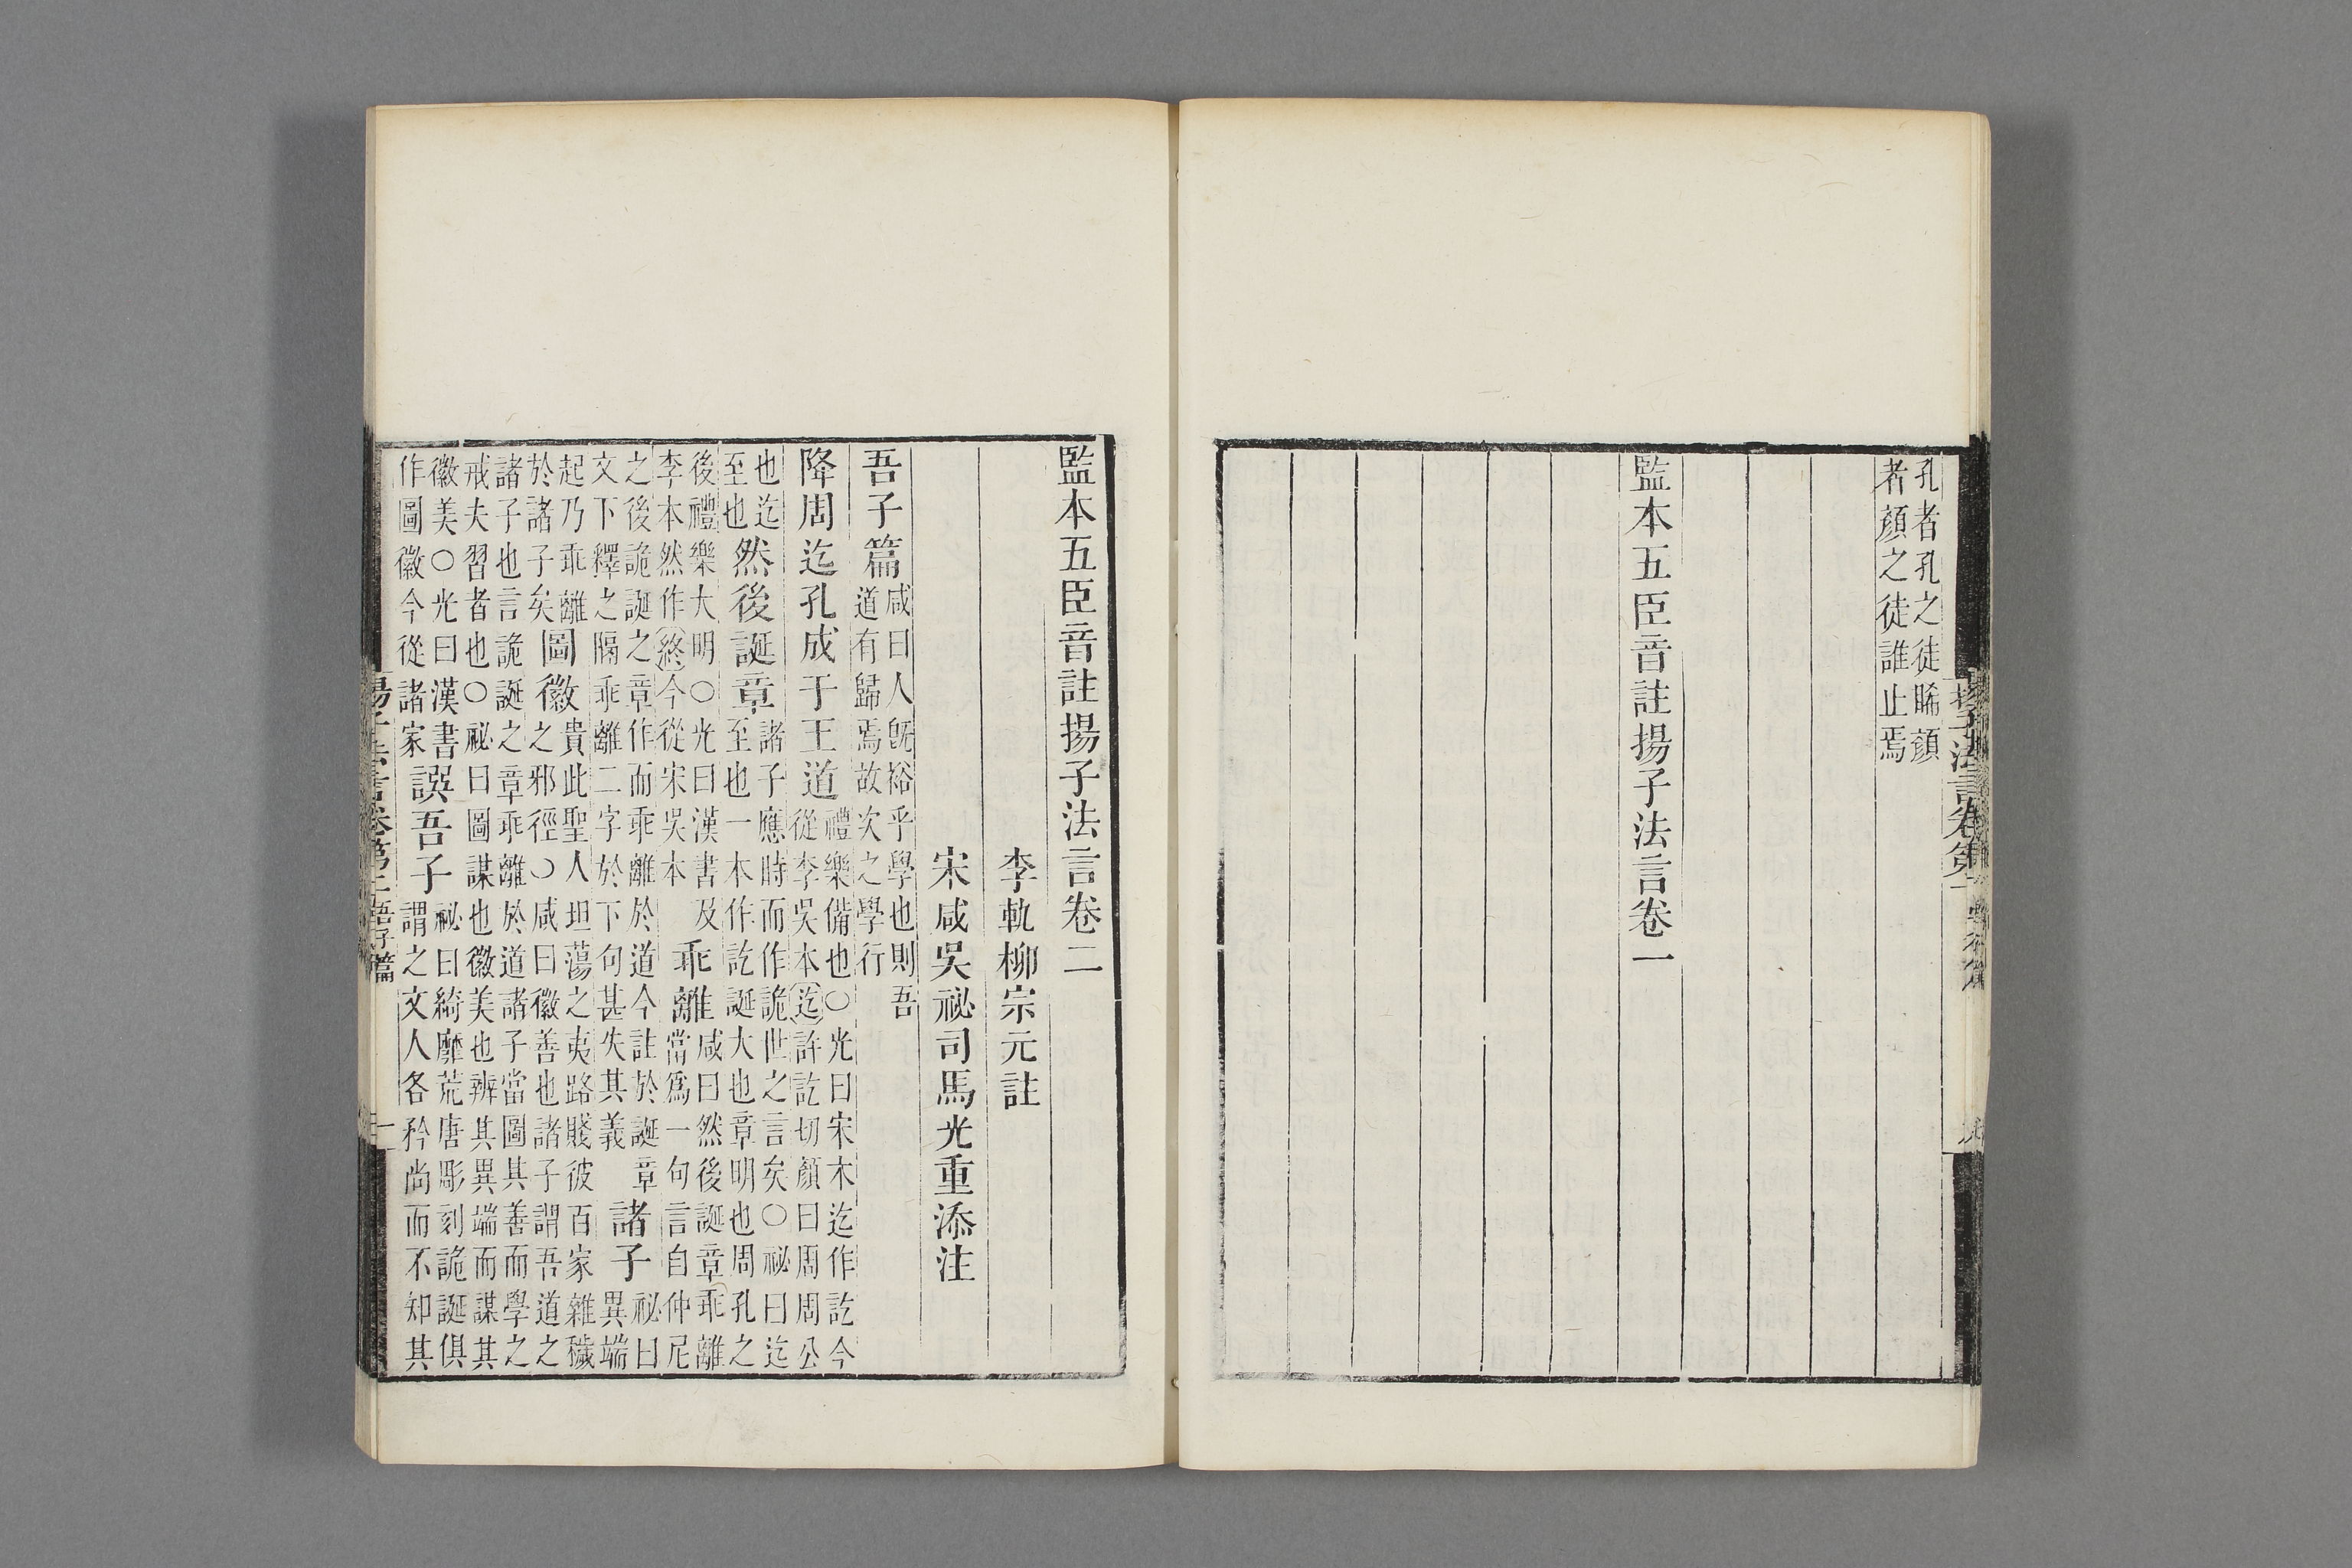 揚子法言卷第一 學行篇
孔者孔之徒睎顏
者顏之徒誰止焉
監本五臣音註揚子法言卷一
監本五臣音註揚子法言卷二
李軌柳宗元註
宋咸吳祕司馬光重添注
吾子篇咸曰人旣裕乎學也則吾道有歸焉故次之學行
降周迄孔成于王道禮樂備也○光曰宋本迄作訖今從李吳本迄許訖切顏曰周周公
也迄至也然後誕章諸子應時而作詭世之言矣○祕曰迄至也一本作訖誕大也章明也周孔之
後禮樂大明○光曰漢書及李本然作終今從宋吳本乖離咸曰然後誕章乖離當爲一句言自仲尼
之後詭誕之章作而乖離於道今註於誕章文下釋之隔乖離二字於下句甚失其義諸子祕曰異端
起乃乖離於諸子矣圖徽貴此聖人坦蕩之夷路賤彼百家雜穢之邪徑○咸曰徽善也諸子謂吾道之
諸子也言詭誕之章乖離於道諸子當圖其善而學之戒夫習者也○祕曰圖謀也徽美也辨其異端而謀其
徽美○光曰漢書作圖徽今從諸家譔吾子祕曰綺靡荒唐彫刻詭誕俱謂之文人各矜尚而不知其
揚子法言卷第二 吾子篇 一